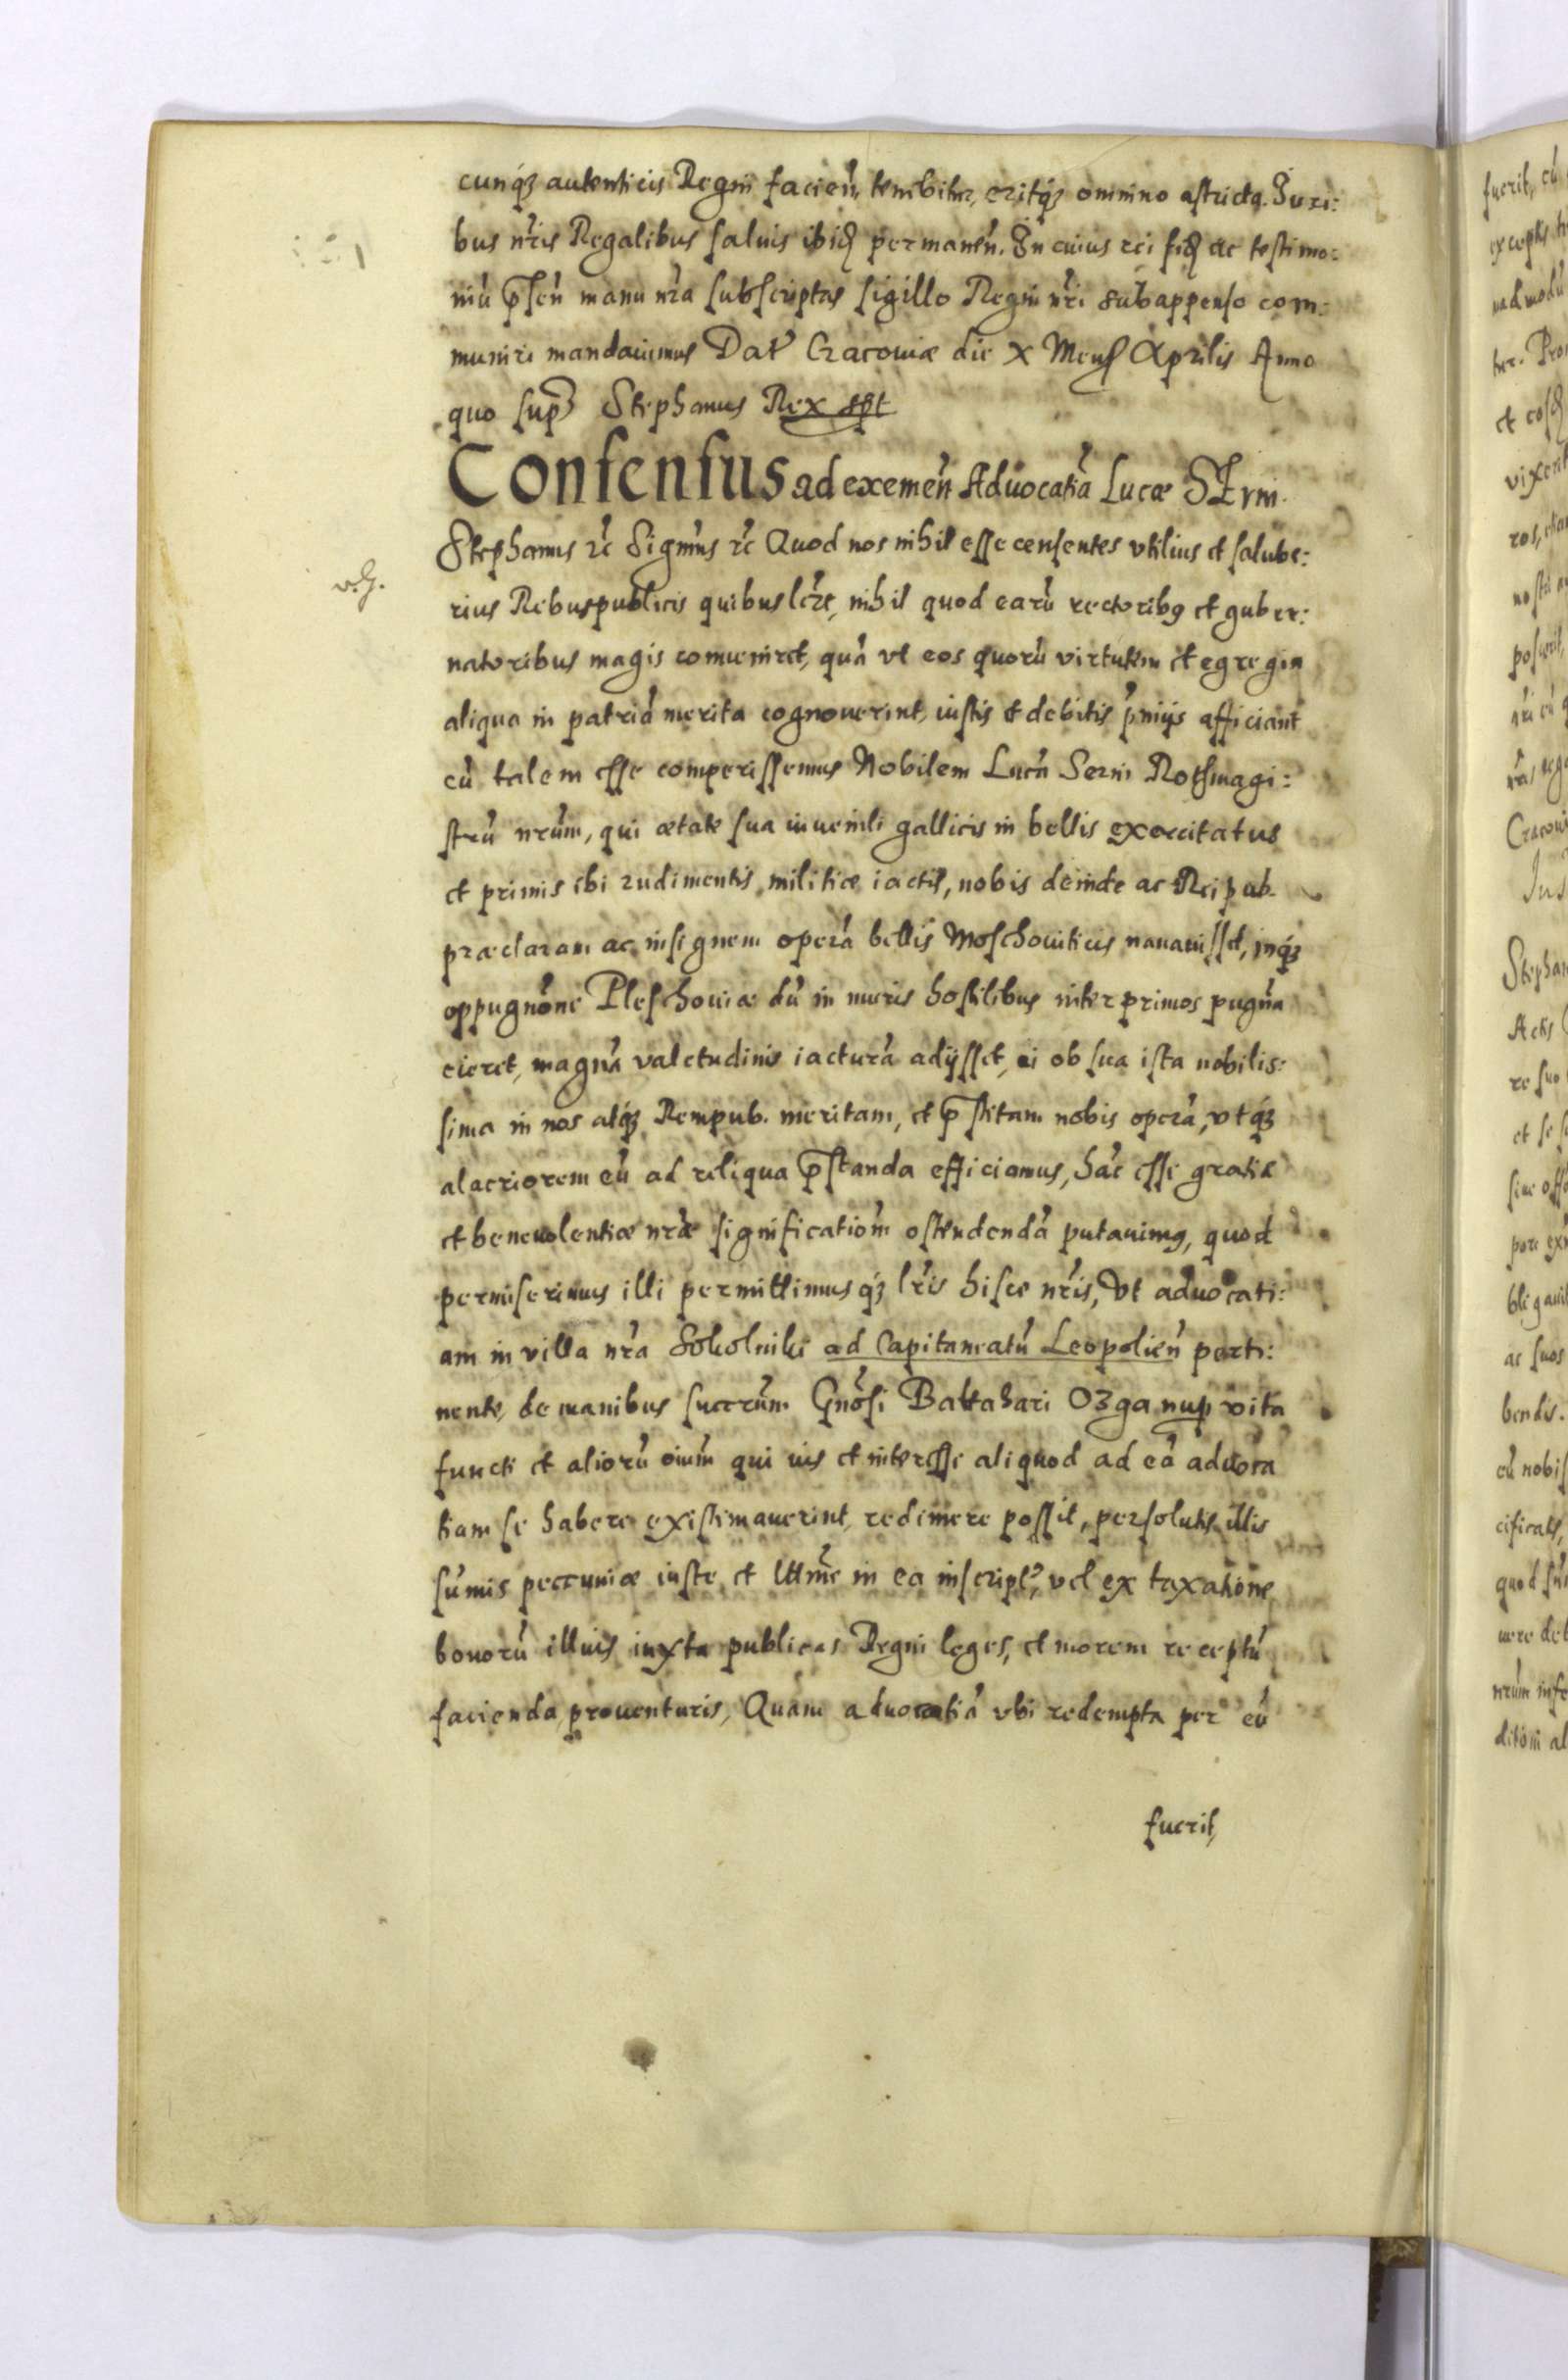 cunq́ȝ autenticis Regni facień, tenebitur, eritq́ȝ omnino astricta. Juri:
bus nr̃is Regalibus saluis ibid permanen̄. In cuius rei fid ac testimo:
niũ p̃sen̄ manu nr̃a subscriptas sigillo Regni nr̃i subappenso com:
muniri mandauimus Dat̃ Cracouiæ die X Mens Aprilis Anno
quo sup̃ Stephanus Rex sst
Consensus ad exemen̄ Aduocatiã Lucæ SErni.
Stephanus rc̃ Sigm̃us rc̃ Quod nos nihil esse censentes vtilius et salube:
rius Rebuspublicis quibuslc̃re, nihil quod earũ rectoribꝰ et guber:
natoribus magis conueniret, quã vt eos quorũ virtutem et egregia
aliqua in patriã merita cognouerint, iustis et debitis p̃miis afficiant
cũ talem esse comperissemus Nobilem Lucã Serni Rothmagi:
strũ nrũm, qui ætate sua iuuenili gallicis in bellis exercitatus
et primis ibi rudimentis militiæ iactis, nobis deinde ac Reipub.
præclaram ac insignem operã bellis Moschouiticis nauauisset, inq́ȝ
oppugnõne Pleschouiæ dũ in muris hostilibus inter primos pugnã
cieret, magnã valetudinis iacturã adijsset, ei ob sua ista nobilis:
sima in nos atq́ȝ Rempub. meritam, et p̃stitam nobis operã, vtq́ȝ
alacriorem eũ ad reliqua p̃standa efficiamus, hãc esse gratiæ
et beneuolentiæ nræ̃ significatiom̃ ostendendã putauimꝰ, quod
permiserimus illi permittimusq́ȝ lr̃is hisce nr̃is, Vt aduocati:
am in villa nr̃a Sokolniki ad Capitaneatũ Leopolien̄ perti:
nente, de manibus succrũm Gnõsi Baltahari Ozga nup vita
functi et aliorũ oiũm qui ius et interesse aliquod ad eã aduoca
tiam se habere existimauerint, redimere possit, persolutis illis
sũmis peccuniæ iuste et lttm̃e in ea inscript̃, vel ex taxatione
bonorũ illius iuxta publicas Regni leges, et morem receptũ
facienda prouenturis, Quam aduocatiã vbi redempta per eũ
fuerit,